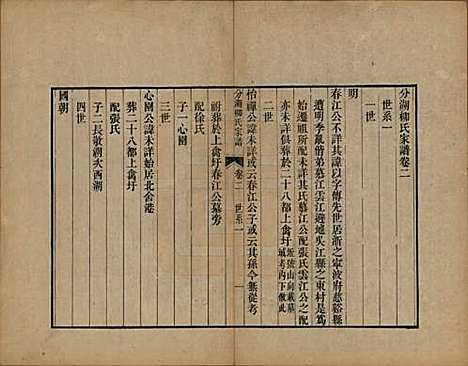 分湖柳氏家譜卷二
世系一
一世
明
春江公不詳其諱以字傳先世居浙之寧波府慈谿縣
遭明季亂偕弟慕江雲江避地吳江縣之東村是爲
始遷祖所配未詳其氏慕江公配張氏雲江公之配
亦未詳俱葬於二十八都上禽圩
二世
分湖柳氏家譜 卷二 世系一 一
怡禪公諱未詳或云春江公子或云其孫今無從考
祔葬於上禽圩春江公墓旁
配徐氏
子一心園
三世
心園公諱未詳始居北舍港
葬二十八都上禽圩
配張氏
子二長敬湖次西湖
四世
國朝